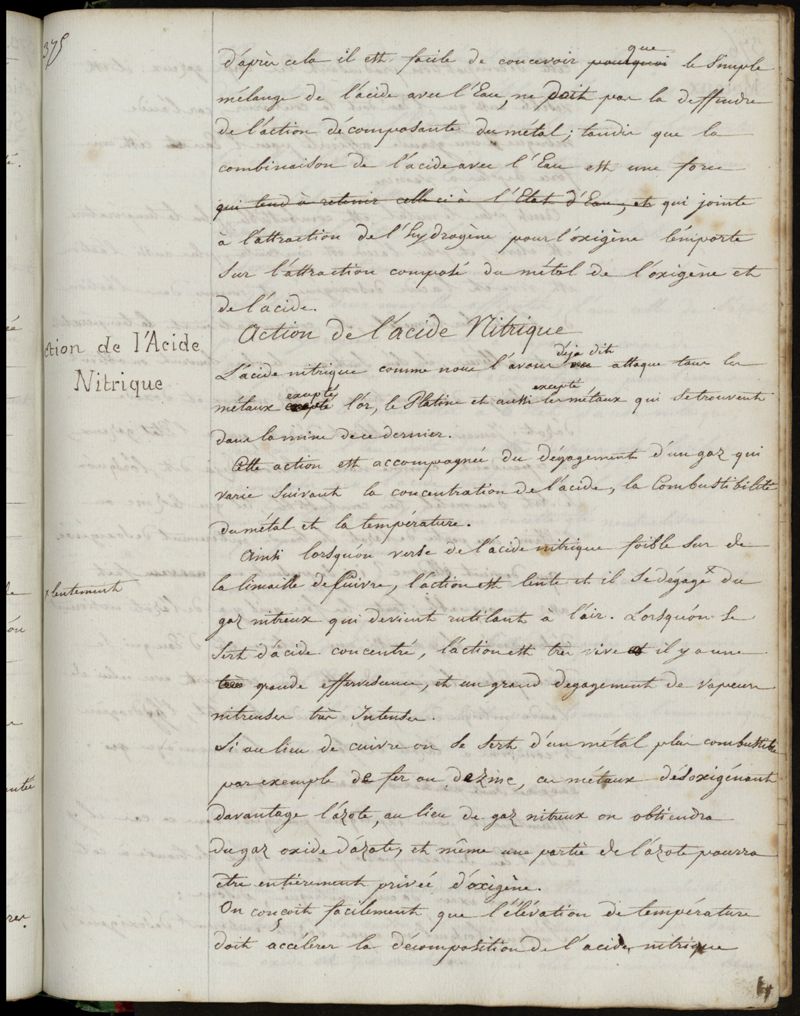 375
d'après cela il est facile de concevoir pourquoi que le simple
mélange de l'acide avec l'Eau, ne doit pas la deffendre
de l'action décomposante du métal; tandis que la
combinaison de l'acide avec l'Eau est une force
qui tend à retenir celle ci à l'Etat d'Eau, et qui jointe
à l'attraction de l'hydrogène pour l'oxigène l'emporte
sur l'attraction composé du métal de l'oxigène et
de l'acide.
Action de l'acide Nitrique
ction de l'Acide
Nitrique
L'acide nitrique comme nous l'avons déja dit attaque tous les
métaux exceptés l'or, le Platine et aussi excepté les métaux qui se trouvent
dans la mine de ce dernier.
Cette action est accompagnée du dégagement d'un gaz qui
varie suivant la concentration de l'acide, la Combustibilité
du métal et la température.
Ainsi lorsqu'on verse de l'acide nitrique foible sur de
la limaille de Cuivre, l'action est lente et il se dégage x du
x lentement
gaz nitreux qui devient rutilant à l'air. Lorsqu'on se
sert d'acide concentré, l'action est très vive et il y a une
très grande effervescence, et un grand degagement de vapeurs
nitreuses très Intenses.
Si au lieu de cuivre on se sert d'un métal plus combustible
par exemple de fer ou de zinc, ces métaux désoxigénant
davantage l'azote, au lieu de gaz nitreux on obtiendra
du gaz oxide d'azote, et même une partie de l'azote pourra
être entièrement privée d'oxigène.
On conçoit facilement que l'élévation de température
doit accélérer la décomposition de l'acide nitrique